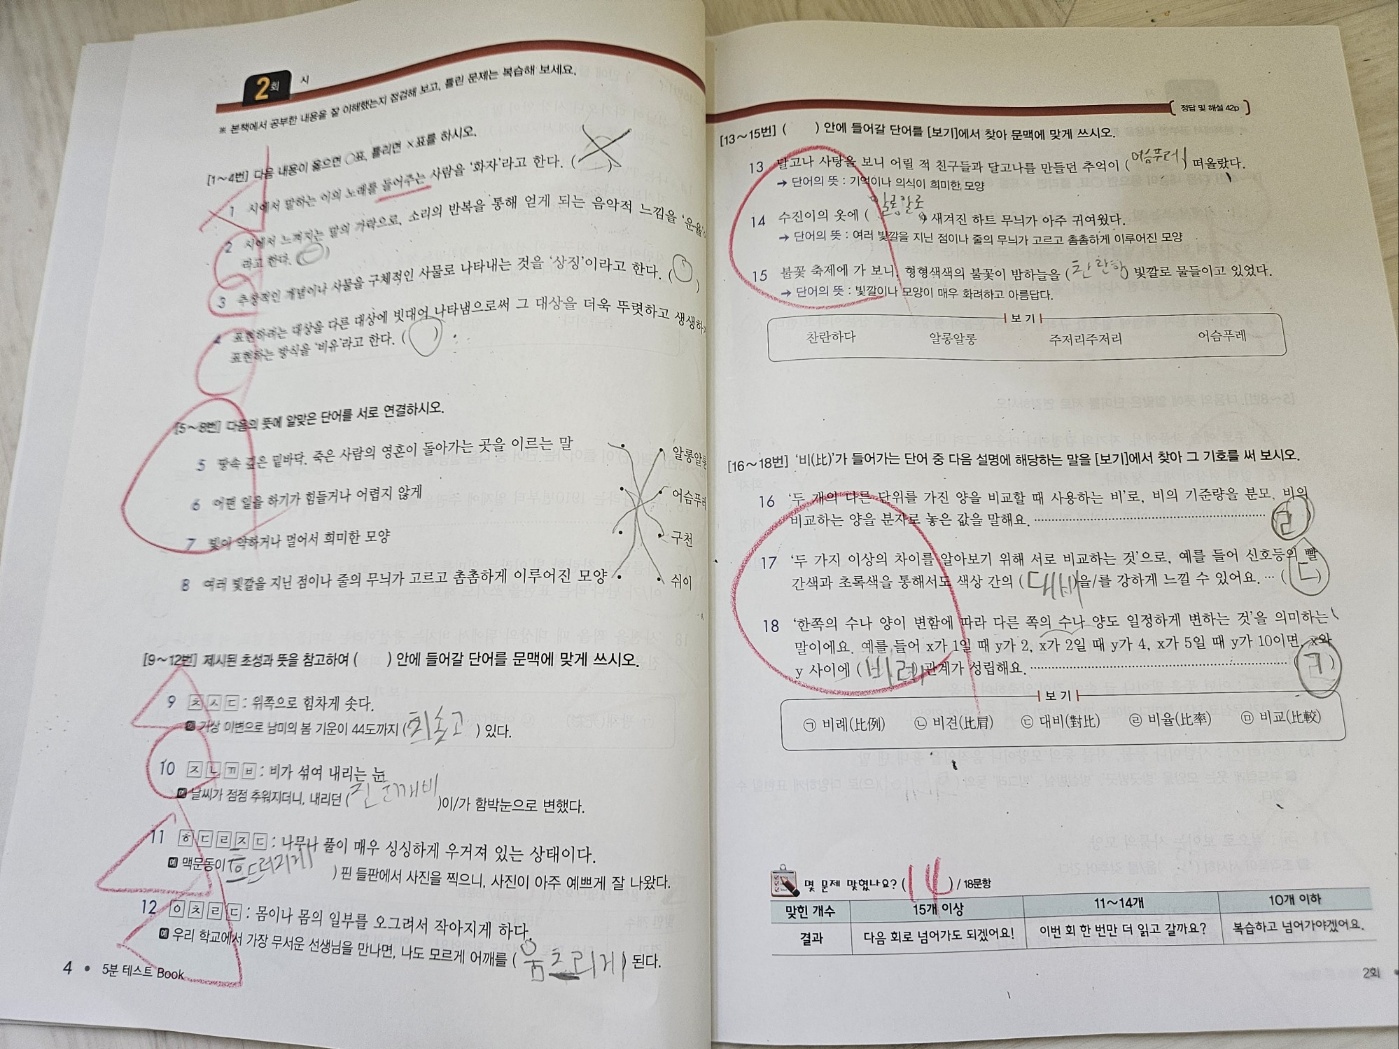 2회 시
※ 본책에서 공부한 내용을 잘 이해했는지 점검해 보고, 틀린 문제는 복습해 보세요.
[1~4번] 다음 내용이 옳으면 ○표, 틀리면 ×표를 하시오.
1 시에서 말하는 이의 노래를 들어주는 사람을 '화자'라고 한다. ( × )
2 시에서 느껴지는 말의 가락으로, 소리의 반복을 통해 얻게 되는 음악적 느낌을 '운율'
라고 한다. ( ○ )
3 추상적인 개념이나 사물을 구체적인 사물로 나타내는 것을 '상징'이라고 한다. ( ○ )
4 표현하려는 대상을 다른 대상에 빗대어 나타냄으로써 그 대상을 더욱 뚜렷하고 생생하
표현하는 방식을 '비유'라고 한다. ( ○ )
[5~8번] 다음의 뜻에 알맞은 단어를 서로 연결하시오.
5 땅속 깊은 밑바닥. 죽은 사람의 영혼이 돌아가는 곳을 이르는 말 알롱알롱
6 어떤 일을 하기가 힘들거나 어렵지 않게 어슴푸레
7 빛이 약하거나 멀어서 희미한 모양 구천
8 여러 빛깔을 지닌 점이나 줄의 무늬가 고르고 촘촘하게 이루어진 모양 쉬이
[9~12번] 제시된 초성과 뜻을 참고하여 ( ) 안에 들어갈 단어를 문맥에 맞게 쓰시오.
9 ㅊ ㅅ ㄷ : 위쪽으로 힘차게 솟다.
예 기상 이변으로 남미의 봄 기온이 44도까지 ( 치솟고 ) 있다.
10 ㅈ ㄴ ㄲ ㅂ : 비가 섞여 내리는 눈
예 날씨가 점점 추워지더니, 내리던 ( 진눈깨비 )이/가 함박눈으로 변했다.
11 ㅎ ㄷ ㄹ ㅈ ㄷ : 나무나 풀이 매우 싱싱하게 우거져 있는 상태이다.
예 맥문동이 ( 흐드러지게 ) 핀 들판에서 사진을 찍으니, 사진이 아주 예쁘게 잘 나왔다.
12 ㅇ ㅊ ㄹ ㄷ : 몸이나 몸의 일부를 오그려서 작아지게 하다.
예 우리 학교에서 가장 무서운 선생님을 만나면, 나도 모르게 어깨를 ( 움츠리게 ) 된다.
4 • 5분 테스트 Book
정답 및 해설 42p
[13~15번] ( ) 안에 들어갈 단어를 [보기]에서 찾아 문맥에 맞게 쓰시오.
13 달고나 사탕을 보니 어릴 적 친구들과 달고나를 만들던 추억이 ( 어슴푸레 ) 떠올랐다.
→ 단어의 뜻 : 기억이나 의식이 희미한 모양
14 수진이의 옷에 ( 알롱알롱 ) 새겨진 하트 무늬가 아주 귀여웠다.
→ 단어의 뜻 : 여러 빛깔을 지닌 점이나 줄의 무늬가 고르고 촘촘하게 이루어진 모양
15 불꽃 축제에 가 보니, 형형색색의 불꽃이 밤하늘을 ( 찬란한 ) 빛깔로 물들이고 있었다.
→ 단어의 뜻 : 빛깔이나 모양이 매우 화려하고 아름답다.
보기
찬란하다 알롱알롱 주저리주저리 어슴푸레
[16~18번] '비(比)'가 들어가는 단어 중 다음 설명에 해당하는 말을 [보기]에서 찾아 그 기호를 써 보시오.
16 '두 개의 다른 단위를 가진 양을 비교할 때 사용하는 비'로, 비의 기준량을 분모, 비의
비교하는 양을 분자로 놓은 값을 말해요. ( ㄹ )
17 '두 가지 이상의 차이를 알아보기 위해 서로 비교하는 것'으로, 예를 들어 신호등의 빨
간색과 초록색을 통해서도 색상 간의 ( 대비 )을/를 강하게 느낄 수 있어요. ( ㄷ )
18 '한쪽의 수나 양이 변함에 따라 다른 쪽의 수나 양도 일정하게 변하는 것'을 의미하는
말이에요. 예를 들어 x가 1일 때 y가 2, x가 2일 때 y가 4, x가 5일 때 y가 10이면, x와
y 사이에 ( 비례 )관계가 성립해요. ( ㄱ )
보기
㉠ 비례(比例) ㉡ 비견(比肩) ㉢ 대비(對比) ㉣ 비율(比率) ㉤ 비교(比較)
몇 문제 맞혔나요? ( 14 ) / 18문항
맞힌 개수 15개 이상 11~14개 10개 이하
결과 다음 회로 넘어가도 되겠어요! 이번 회 한 번만 더 읽고 갈까요? 복습하고 넘어가야겠어요.
2회